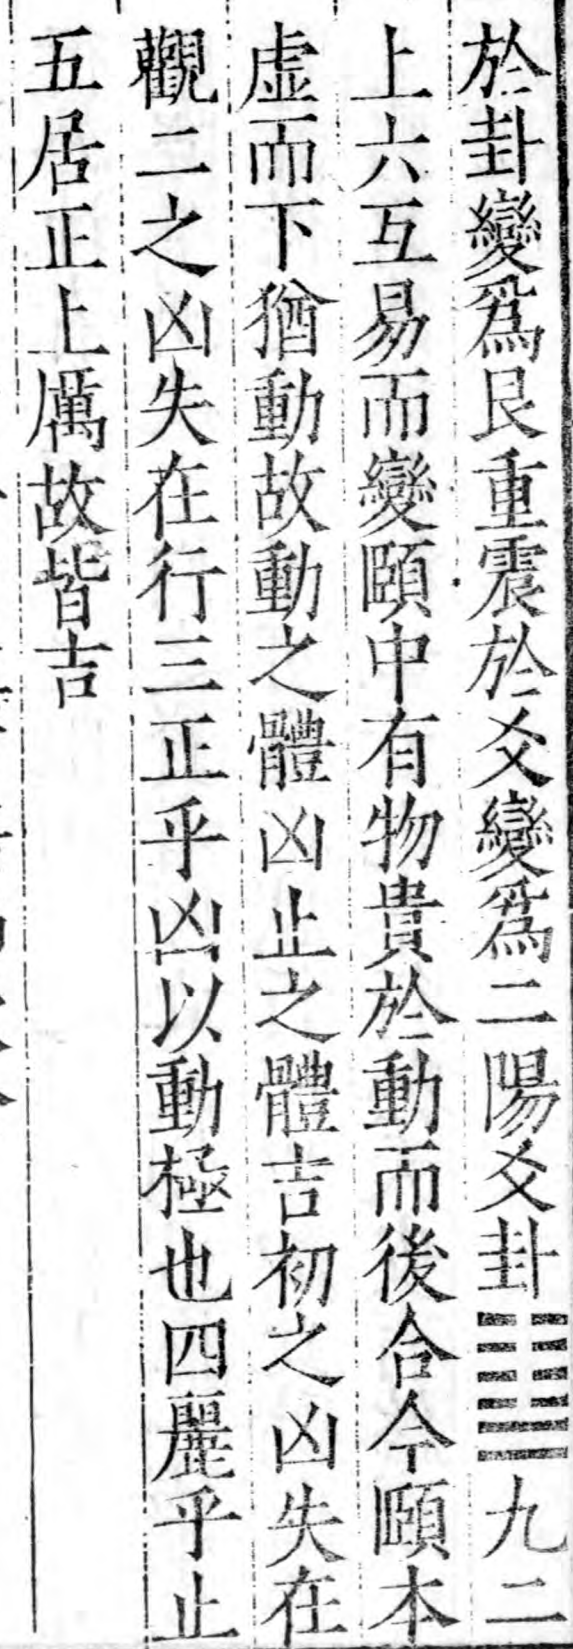 於卦變爲艮重震於爻變爲二陽爻卦䷒九二
上六互易而變頤中有物貴於動而後合今頤本
虚而下猶動故動之體凶止之體吉初之凶失在
觀二之凶失在行三正乎凶以動極也四麗乎止
五居正上厲故皆吉